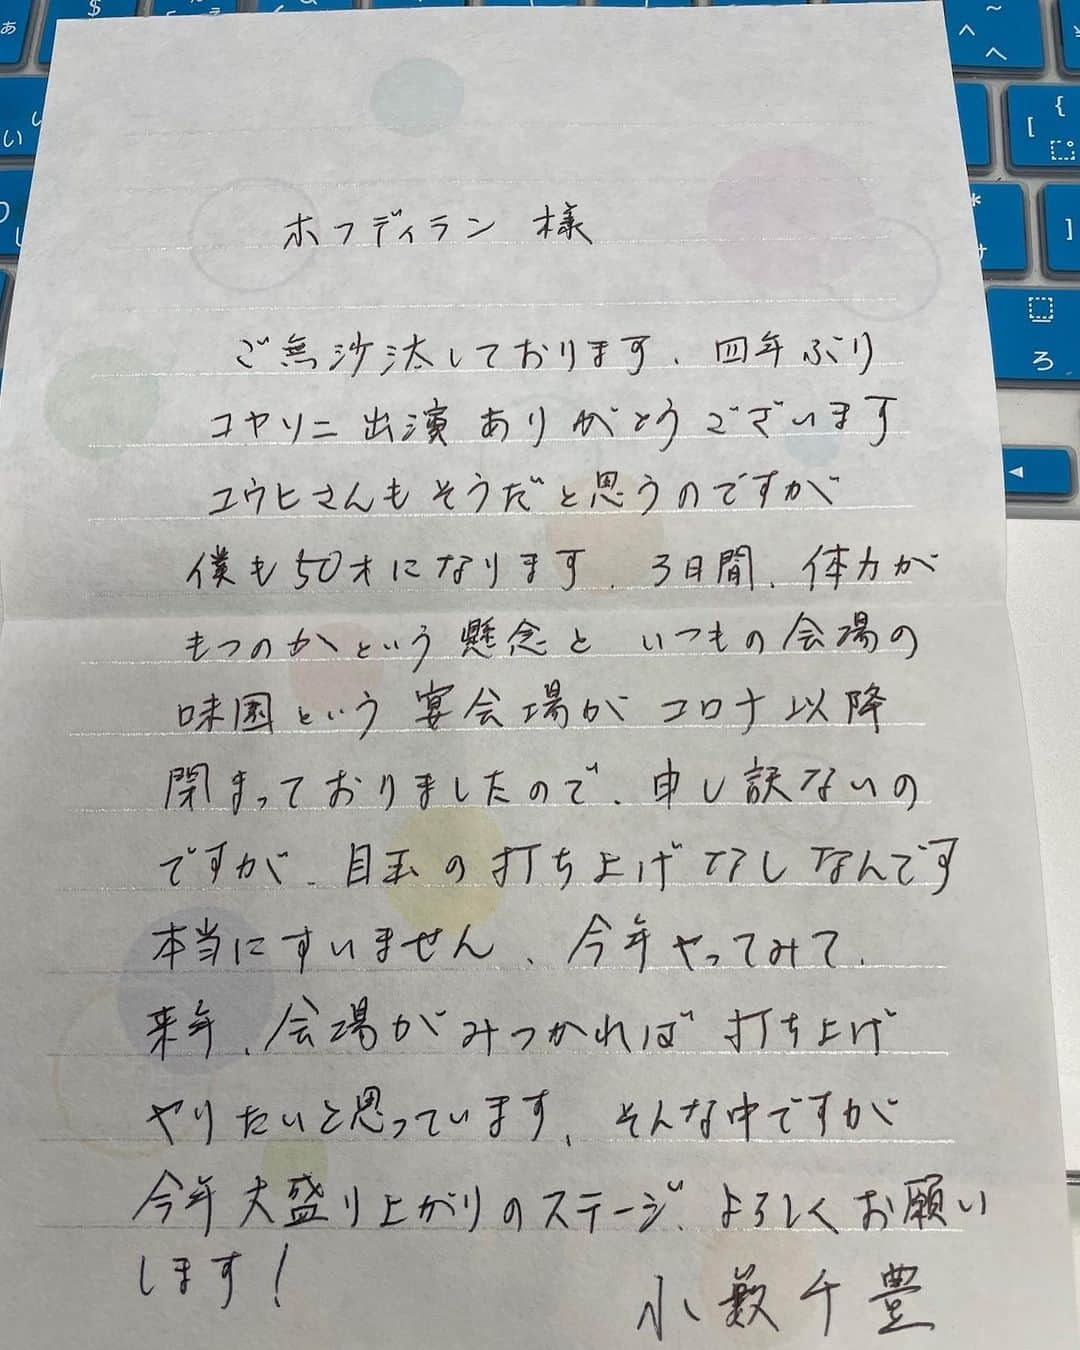 ホフディラン 様
ご無沙汰しております、四年ぶり
コヤソニ 出演 ありがとうございます
ユウヒさんもそうだと思うのですが
僕も50才になります、3日間、体力が
もつのかという懸念と いつもの会場の
味園という宴会場がコロナ以降
閉まっておりましたので、申し訳ないの
ですが、目玉の打ち上げなしなんです
本当にすいません、今年やってみて、
来年、会場がみつかれば打ち上げ
やりたいと思っています、そんな中ですが
今年大盛り上がりのステージ、よろしくお願い
します！
小籔千豊